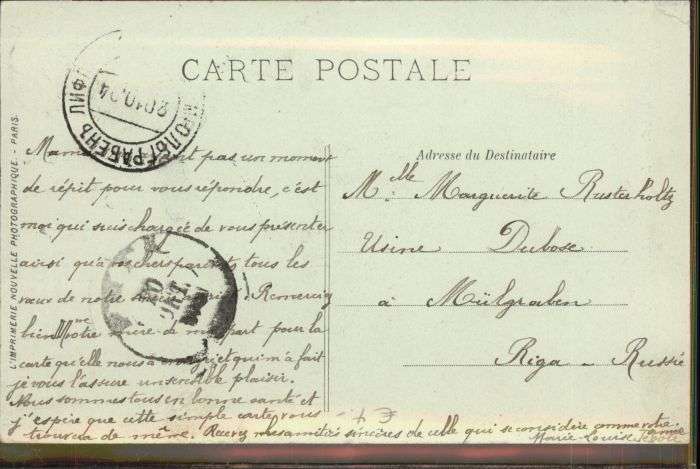 CARTE POSTALE
Adresse du Destinataire
L'IMPRIMERIE NOUVELLE PHOTOGRAPHIQUE. - PARIS.
20.10.04
Maman pas un moment
de répit pour vous répondre, c'est
moi qui suis chargée de vous présenter
ainsi qu'à tous les
vœux de notre Remerciez
bien Mme votre mère de ma part pour la
carte qu'elle nous a et qui m'a fait
je vous l'assure un sensible plaisir.
Nous sommes tous en bonne santé et
j'espère que cette simple carte vous
trouvera de même. Recevez mes amitiés sincères de celle qui se considère comme votre amie
Marie Louise
Melle Marguerite Rusterholtz
Usine Dubose
à Mülgraben
Riga - Russie